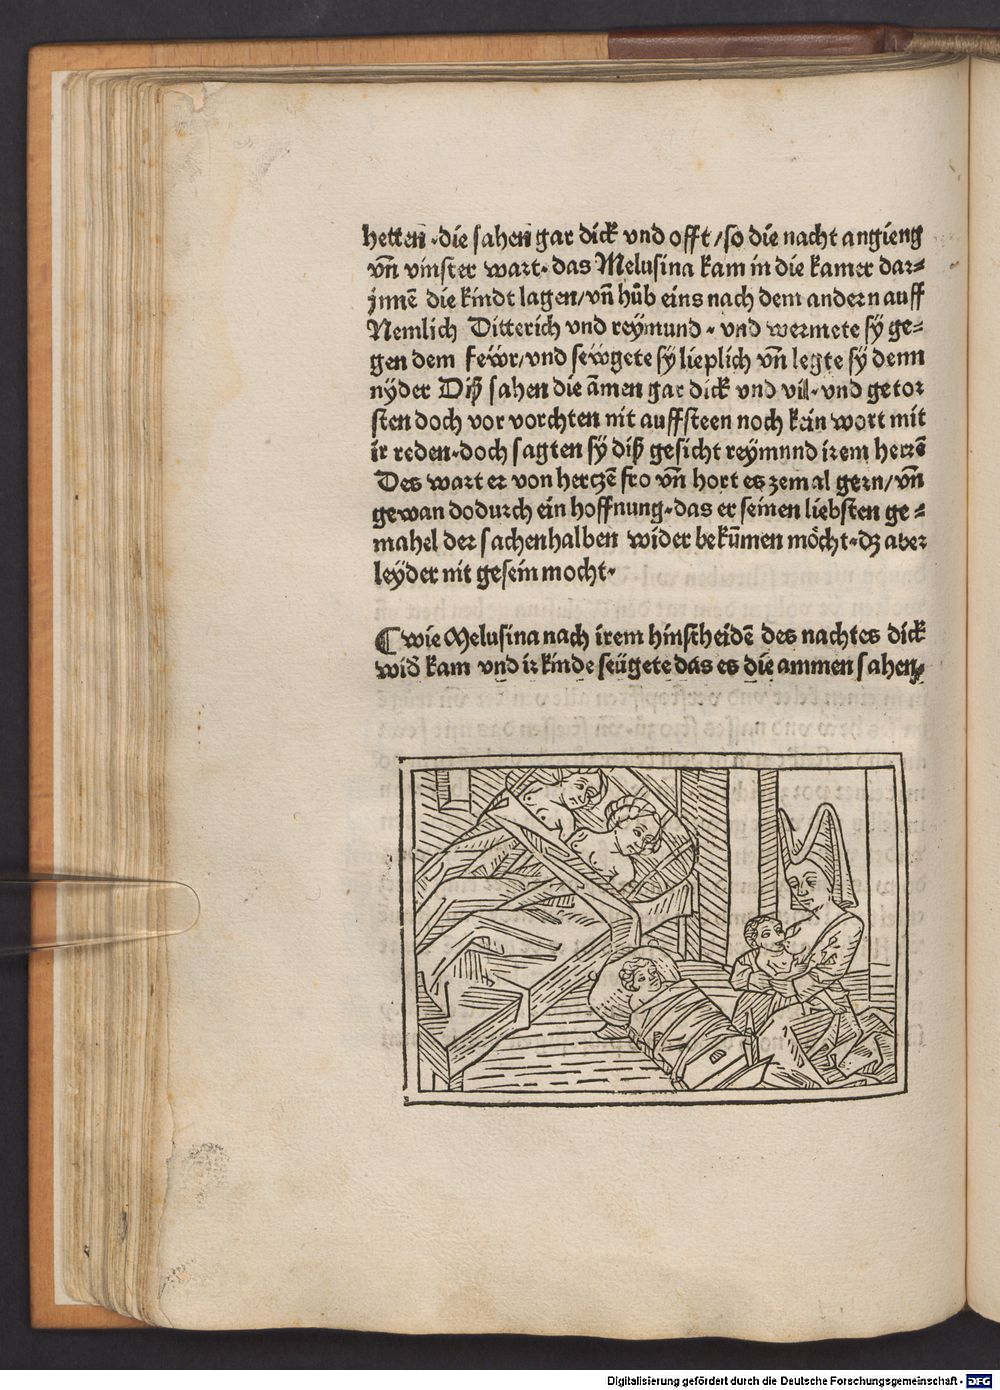 hetten ·die sahen gar dick vnd offt/so die nacht angieng
vñ vinster wart· das Melusina kam in die kamer dar⸗
jnnē die kindt lagen/vñ hůb eins nach dem andern auff
Nemlich Ditterich vnd reymund · vnd wermete sÿ ge⸗
gen dem fewr/vnd sewgete sÿ lieplich vñ legte sÿ denn
nÿder Diß sahen die āmen gar dick vnd vil· vnd getor
sten doch vor vorchten nit auffsteen noch kein wort mit
ir reden·doch sagten sÿ diß gesicht reÿmund irem herrē
Des wart er von hertzē fro vñ hort es zemal gern/vñ
gewan dodurch ein hoffnung·das er seinen liebsten ge⸗
mahel der sachenhalben wider bekūmen möcht·dz aber
leÿder nit gesein mocht·
¶ wie Melusina nach irem hinscheidē des nachtes dick
wid̄ kam vnd ir kinde seügete das es die ammen sahen·
Digitalisierung gefördert durch die Deutsche Forschungsgemeinschaft - DFG